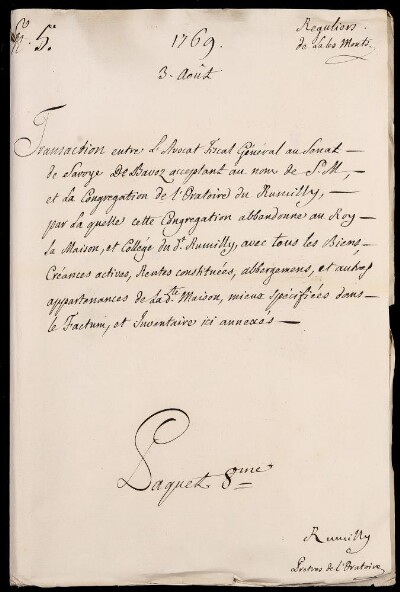 N.º 5.º
1769.
3. Août
Reguliers
de la les Monts
Transaction entre L'Avocat Fiscal Général au Senat
de Savoye De Bavoz acceptant au nom de S. M.,
et la Congregation de l'Oratoire du Rumilly,
par la quelle cette Congregation abbandonne au Roy
la Maison, et College du d.t Rumilly, avec tous les Biens,
Créances actives, Rentes constituées, albergemens, et autres
appartenances de La d.te Maison, mieux spécifiées dans
le Factum, et Inventaire ici annexés
Paquet 8.me
Rumilly
Pretres de l'Oratoire